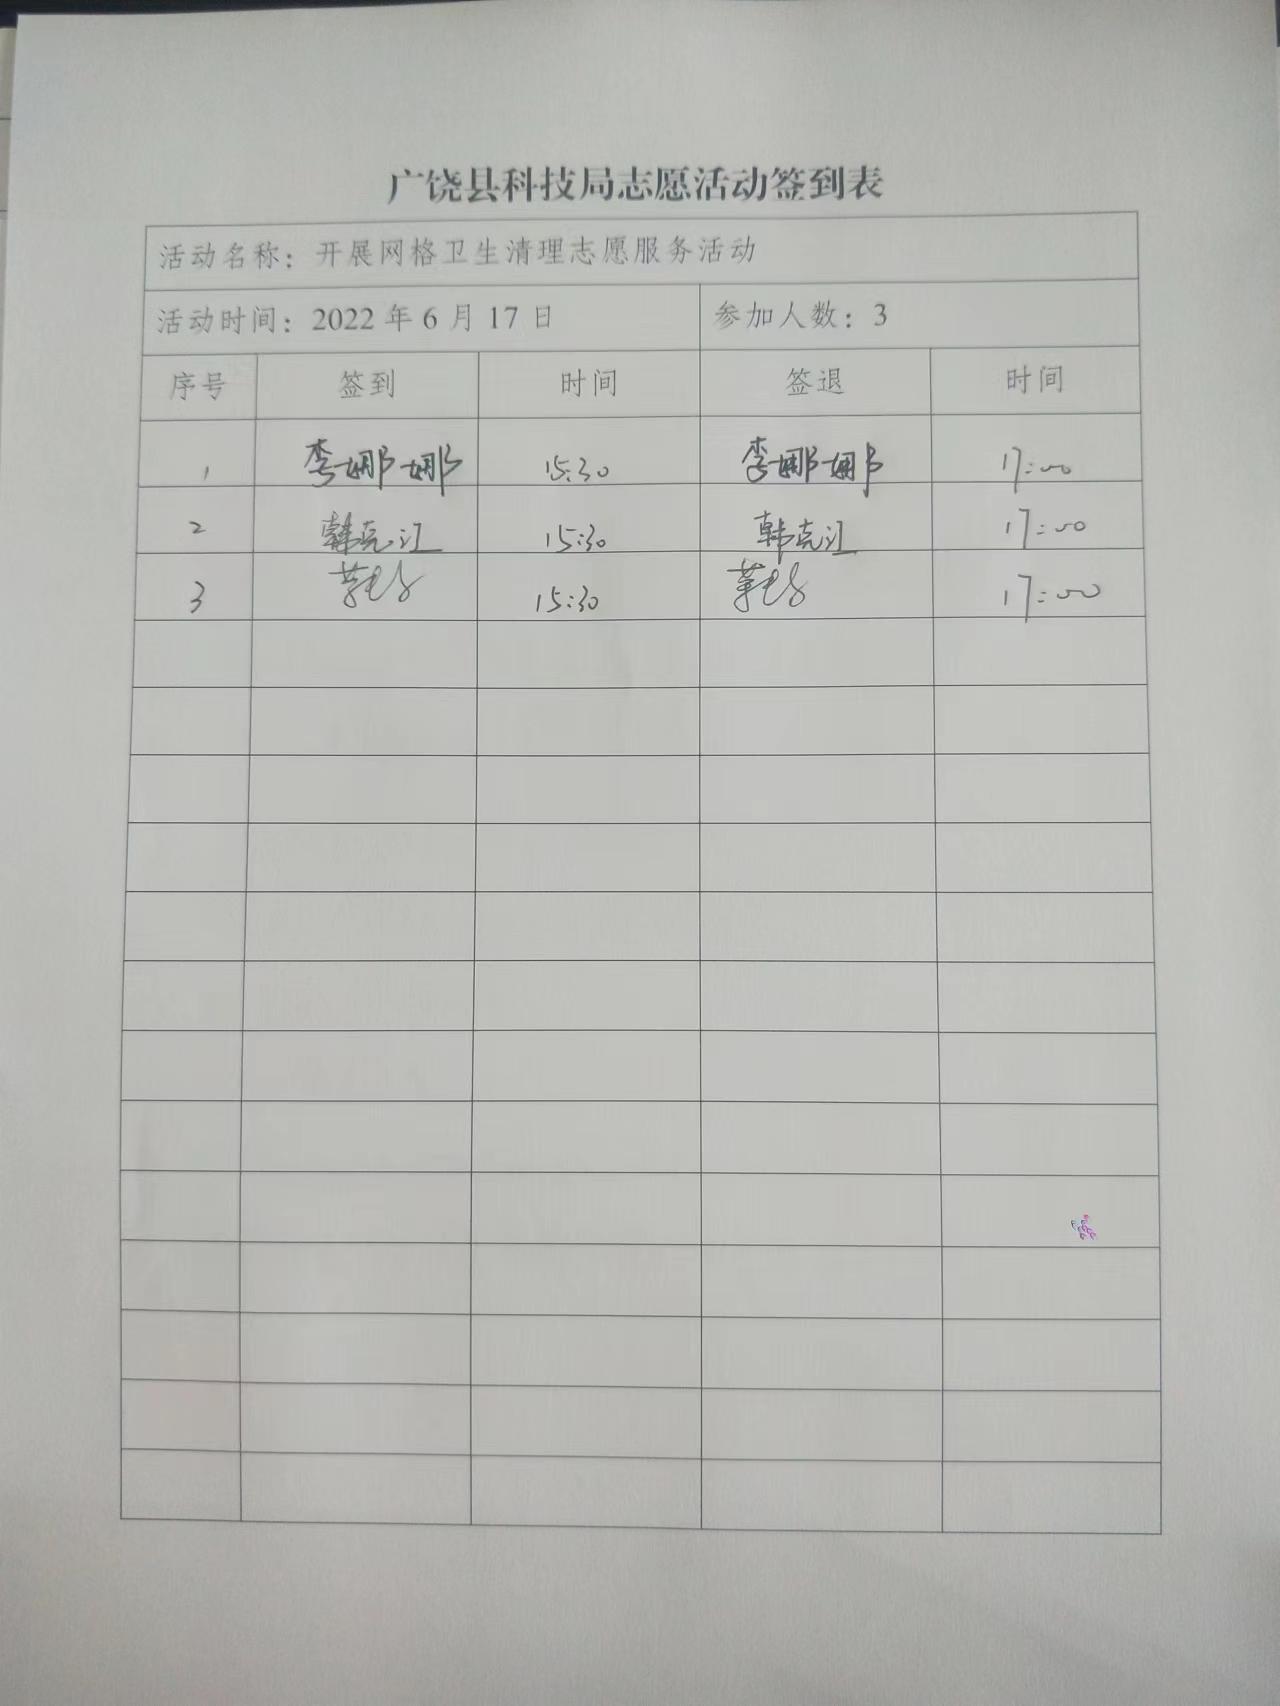 广饶县科技局志愿活动签到表
活动名称：开展网格卫生清理志愿服务活动
活动时间：2022 年 6 月 17 日 参加人数：3
序号 签到 时间 签退 时间
1 李娜娜 15:30 李娜娜 17:00
2 韩克江 15:30 韩克江 17:00
3 15:30 17:00